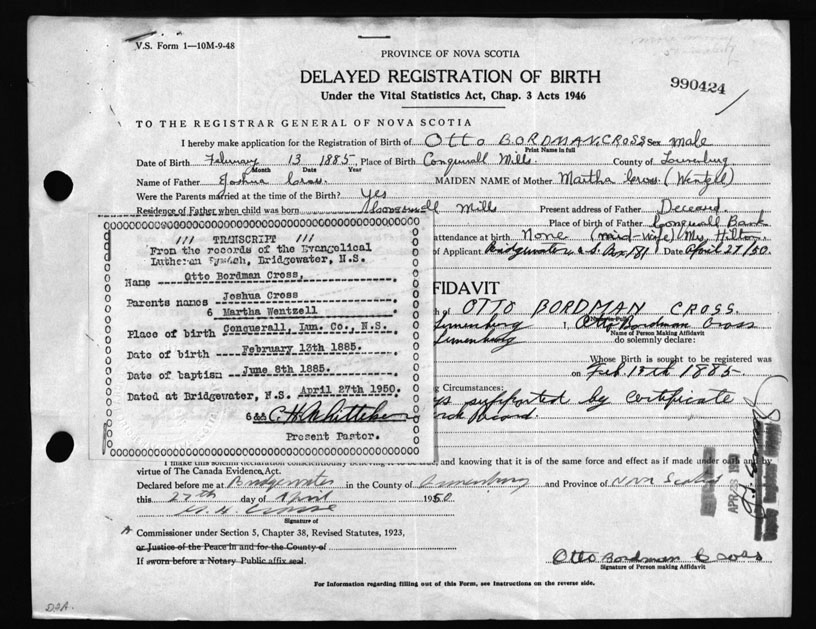 V.S. Form 1—10M-9-48
PROVINCE OF NOVA SCOTIA
DELAYED REGISTRATION OF BIRTH
990424
Under the Vital Statistics Act, Chap. 3 Acts 1946
TO THE REGISTRAR GENERAL OF NOVA SCOTIA
I hereby make application for the Registration of Birth of Otto BORDMAN CROSS Sex male
Print Name in full
Date of Birth February 13 1885, Place of Birth Conquerall Mills. County of Lunenburg
Month Date Year
Name of Father Joshua Cross. MAIDEN NAME of Mother Martha Cross (Wentzell)
Were the Parents married at the time of the Birth? Yes
Residence of Father when child was born Conquerall Mills Present address of Father Deceased
Place of birth of Father Conquerall Bank
attendance at birth None (mid-wife) Mrs. Hilton.
of Applicant Bridgewater N.S. Box 181 Date April 27/50.
/// TRANSCRIPT ///
From the records of the Evangelical
Lutheran Synod, Bridgewater, N.S.
Name Otto Bordman Cross,
Parents names Joshua Cross
& Martha Wentzell
Place of birth Conquerall, Lun. Co., N.S.
Date of birth February 13th 1885.
Date of baptism June 8th 1885.
Dated at Bridgewater, N.S. April 27th 1950.
C.H. Whitteker
Present Pastor.
FIDAVIT
h of OTTO BORDMAN CROSS.
Lunenburg I, Otto Bordman Cross
Name of Person Making Affidavit
Lunenburg do solemnly declare:
Whose Birth is sought to be registered was
on Feb. 13th 1885.
ng Circumstances:
supported by Certificate
Record.
I make this solemn declaration conscientiously believing it to be true, and knowing that it is of the same force and effect as if made under oath and by
virtue of The Canada Evidence Act.
Declared before me at Bridgewater in the County of Lunenburg and Province of Nova Scotia
this 27th day of April 1950
Signature of
A Commissioner under Section 5, Chapter 38, Revised Statutes, 1923,
or Justice of the Peace in and for the County of
If sworn before a Notary Public affix seal.
Otto Bordman Cross
Signature of Person making Affidavit
For Information regarding filling out of this Form, see Instructions on the reverse side.